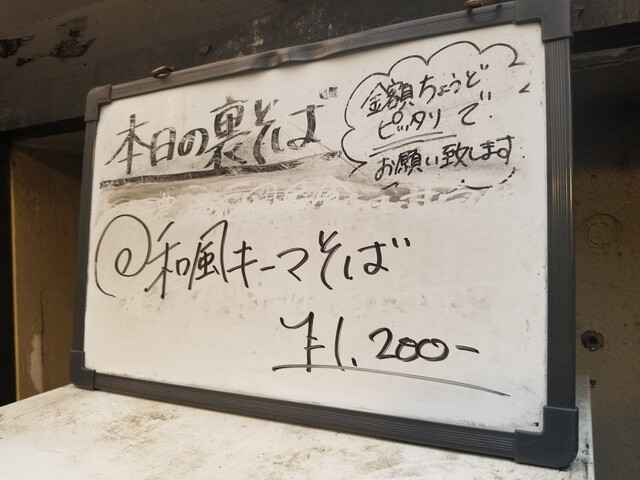 本日の裏そば
金額ちょうど
ピッタリで
お願い致します
和風キーマそば
¥1,200-